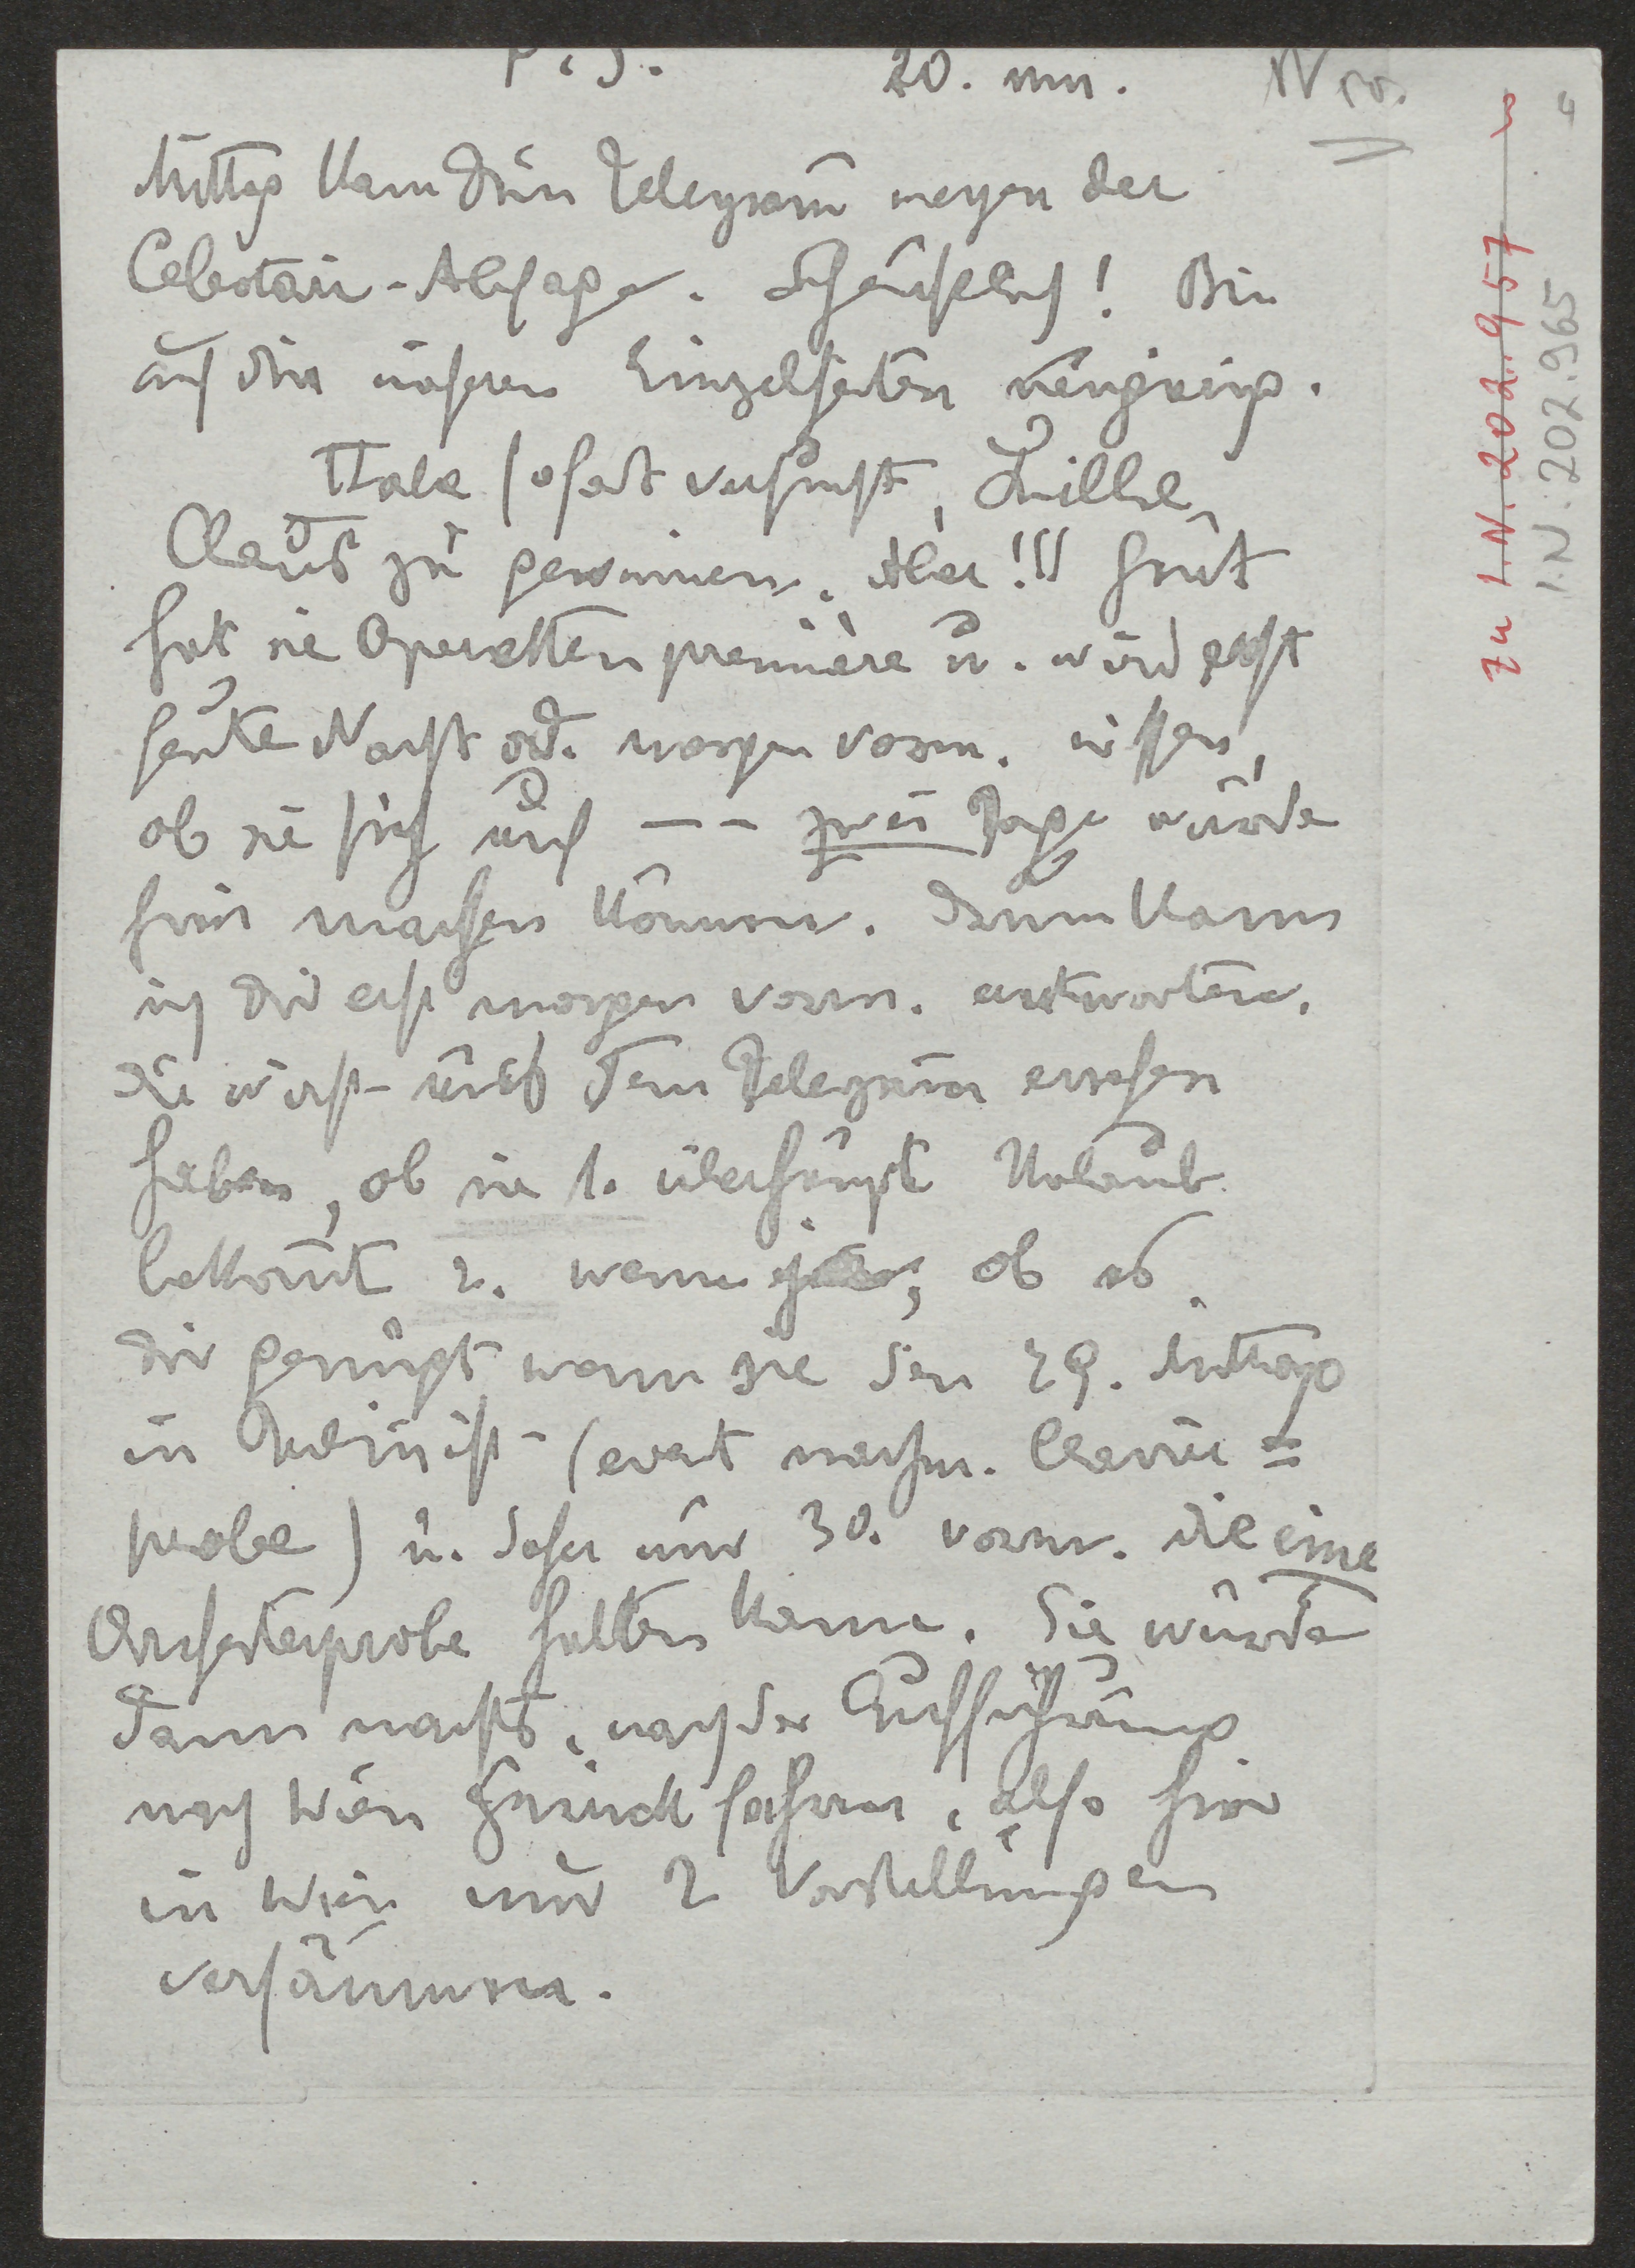 P.S. 20. nm.
Mittag kam Dein Telegram̅ wegen der
Cebotari-Absage. Scheußlich! Bin
auf die näheren Einzelheiten neugierig.
Habe sofort versucht,
Claus zu gewinnen. Aber!!! heut
hat sie Operettenpremière u. wird erst
heute Nacht od. morgen vorm. wissen,
ob sie sich auf -- zwei Tage würde
frei machen können. Drum kann
ich Dir erst morgen vorm. antworten.
Du wirst aus dem Telegram̅ ersehen
haben, ob sie 1. überhaupt Urlaub
bekom̅t 2. wenn ja, ob es
Dir genügt wenn sie den 29. Mittag
in ist (event nachm. Clavier=
probe) u. daher nur 30. vorm. die eine
Orchesterprobe halten kann. Sie würde
dann nachts, nach der Aufführung
nach Wien zurück fahren, also hier
in Wien nur 2 Vorstellungen
versäumen.
zu I.N. 202.957
I.N. 202.965